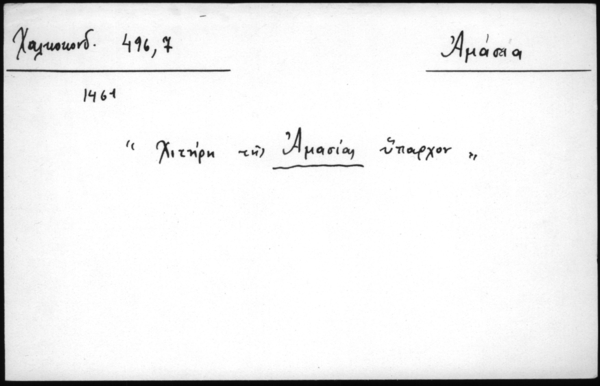 Χαλκοκονδ. 496,7
Ἀμάσεια
1461
“ Χιτήρη τῆς Ἀμασίας ὕπαρχον „